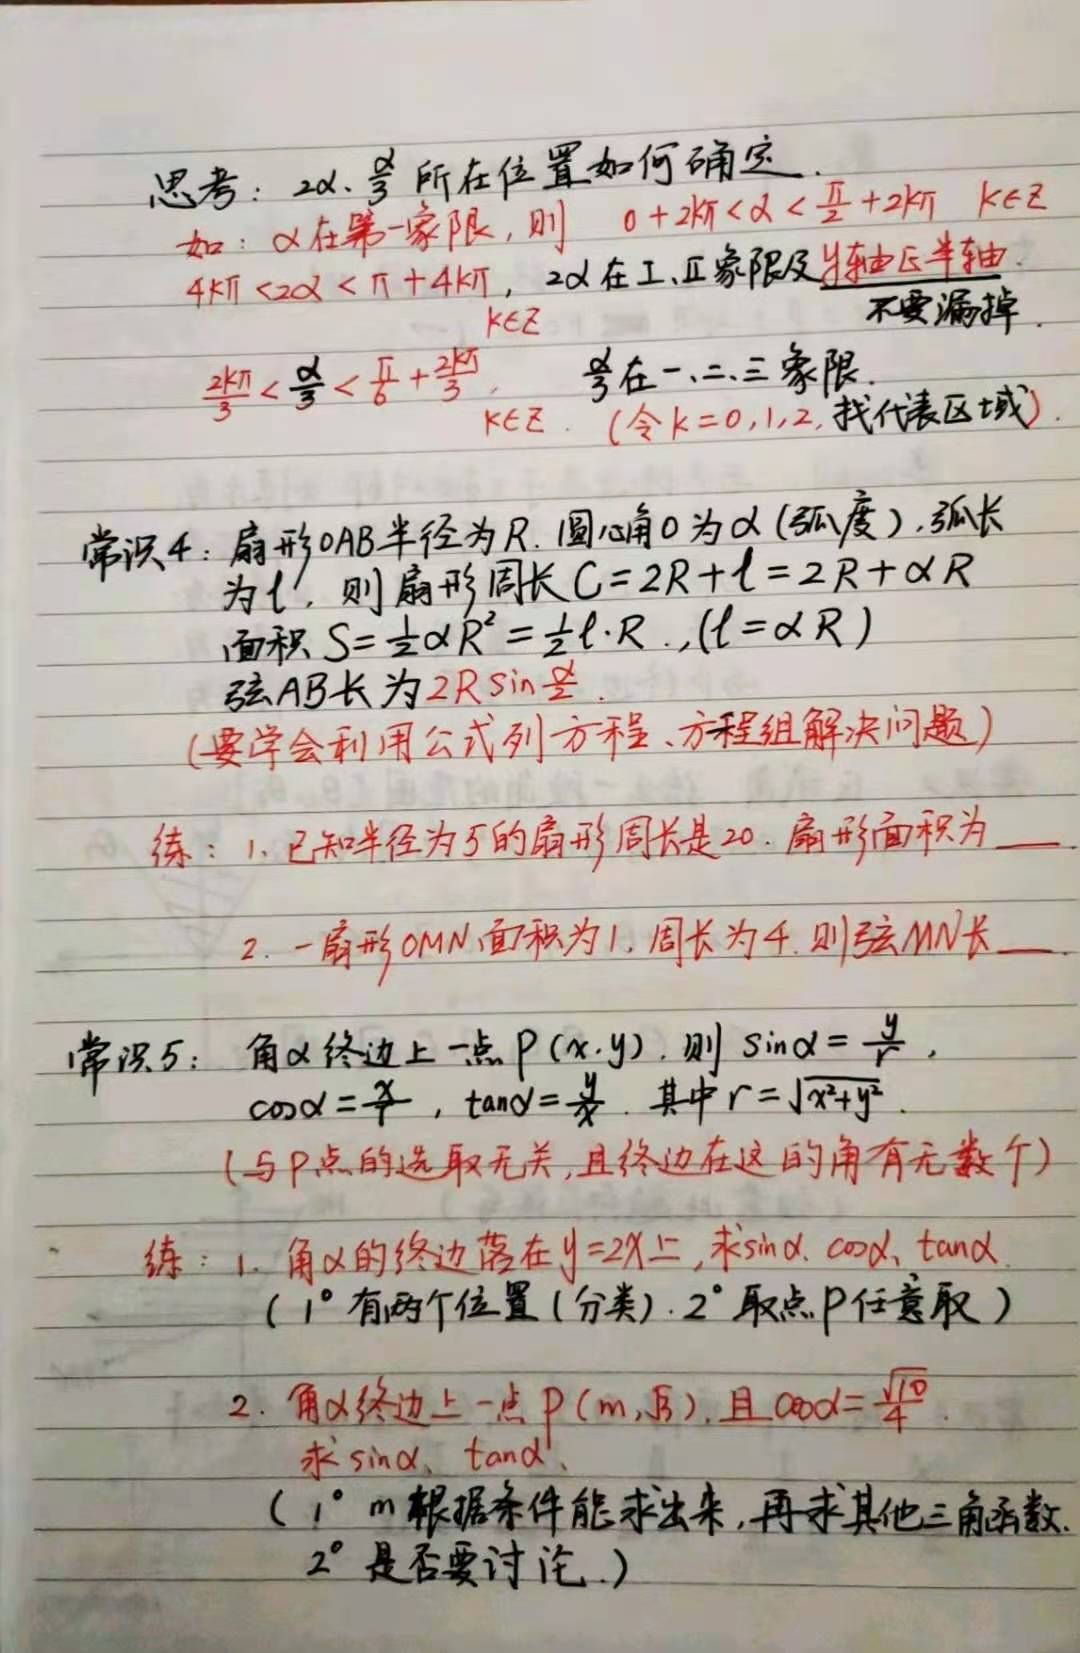 思考：2α、α/3 所在位置如何确定.
如：α在第一象限，则 0+2kπ<α<π/2+2kπ k∈Z
4kπ<2α<π+4kπ，2α在Ⅰ、Ⅱ象限及y轴正半轴.
k∈Z 不要漏掉.
2kπ/3<α/3<π/6+2kπ/3， α/3在一、二、三象限.
k∈Z. (令k=0,1,2,找代表区域).
常识4：扇形OAB半径为R.圆心角O为α(弧度),弧长
为l，则扇形周长C=2R+l=2R+αR
面积S=1/2αR²=1/2l·R.,(l=αR)
弦AB长为2Rsinα/2.
(要学会利用公式列方程、方程组解决问题)
练：1.已知半径为5的扇形周长是20.扇形面积为___.
2.一扇形OMN面积为1,周长为4.则弦MN长___.
常识5：角α终边上一点P(x.y).则sinα=y/r，
cosα=x/r，tanα=y/x.其中r=√x²+y².
(与P点的选取无关,且终边在这的角有无数个)
练：1.角α的终边落在y=2x上,求sinα.cosα、tanα.
(1°有两个位置(分类).2°取点P任意取)
2.角α终边上一点P(m,√3).且cosα=√10/4.
求sinα、tanα、
(1°m根据条件能求出来,再求其他三角函数.
2°是否要讨论.)